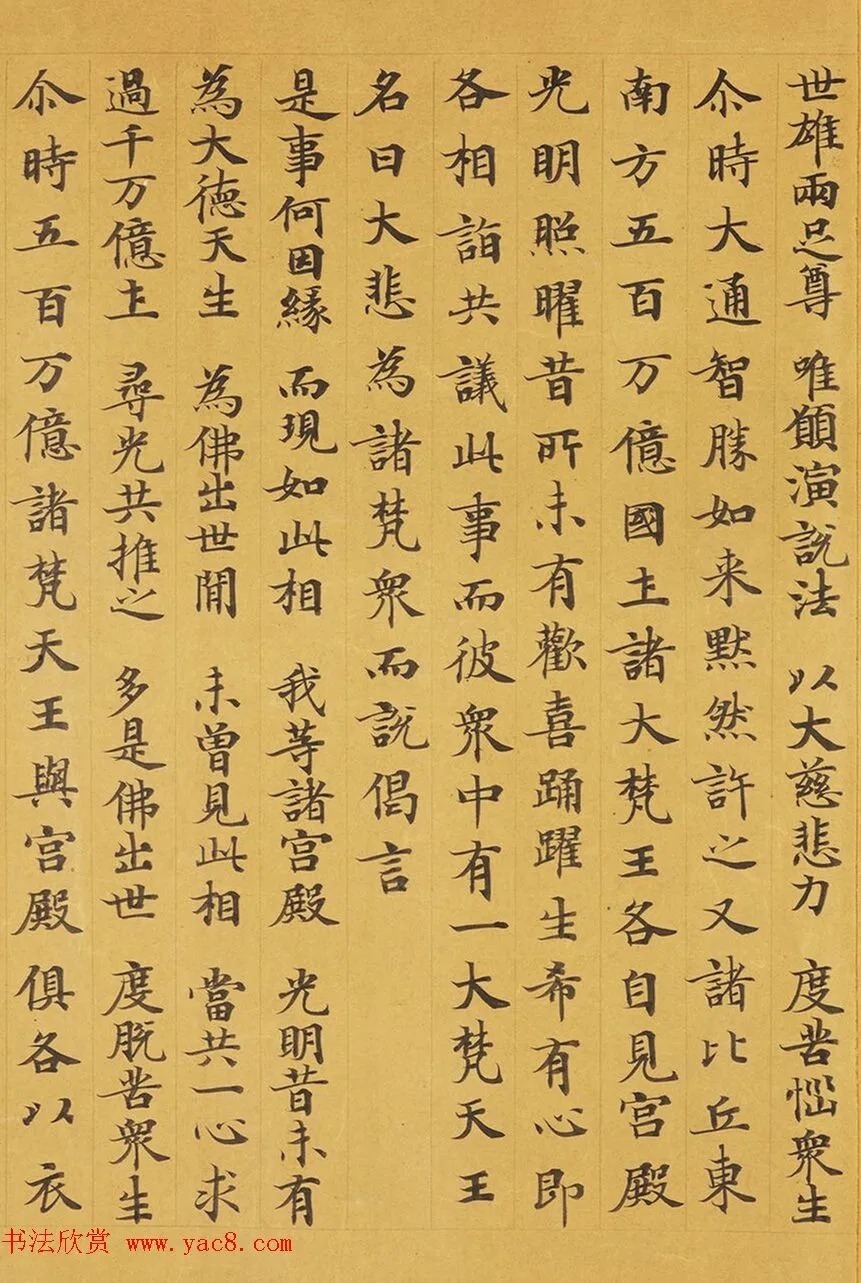 世雄兩足尊 唯願演說法 以大慈悲力 度苦惱衆生
尒時大通智勝如来默然許之又諸比丘東
南方五百万億國土諸大梵王各自見宫殿
光明照曜昔所未有歡喜踊躍生希有心即
各相詣共議此事而彼衆中有一大梵天王
名曰大悲為諸梵衆而說偈言
是事何因緣 而現如此相 我等諸宫殿 光明昔未有
為大德天生 為佛出世間 未曾見此相 當共一心求
過千万億土 尋光共推之 多是佛出世 度脱苦衆生
尒時五百万億諸梵天王與宫殿俱各以衣
书法欣赏 www.yac8.com